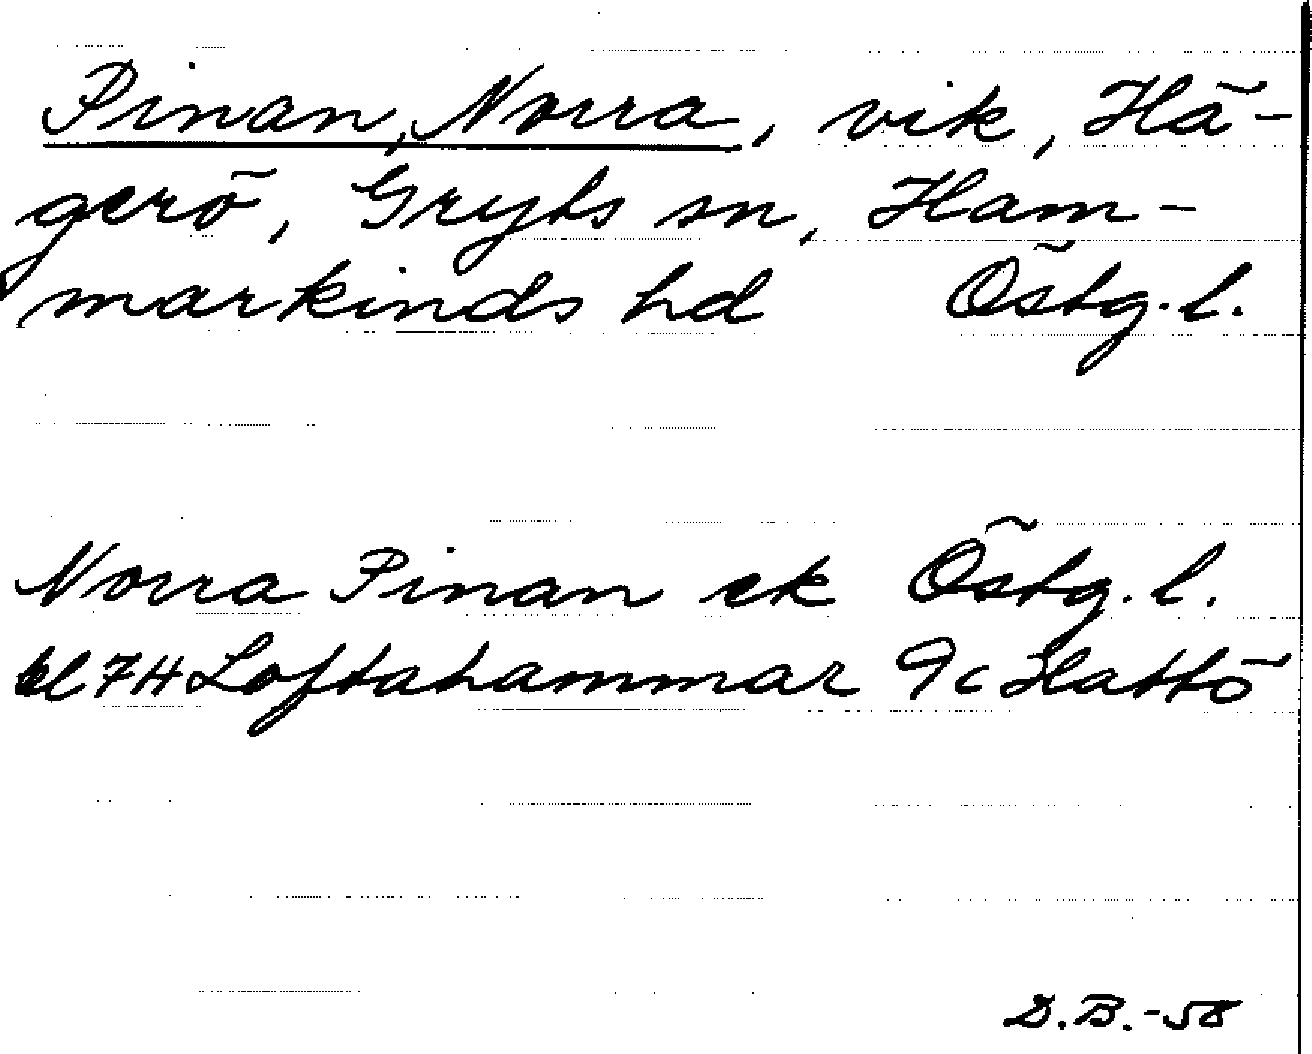 Pinan, Norra, vik, Hä-
gerö, Gryts sn, Ham-
markinds hd Östg. l.
Norra Pinan ek Östg. l.
bl 7H Loftahammar 9c Hattö
D.B.-58